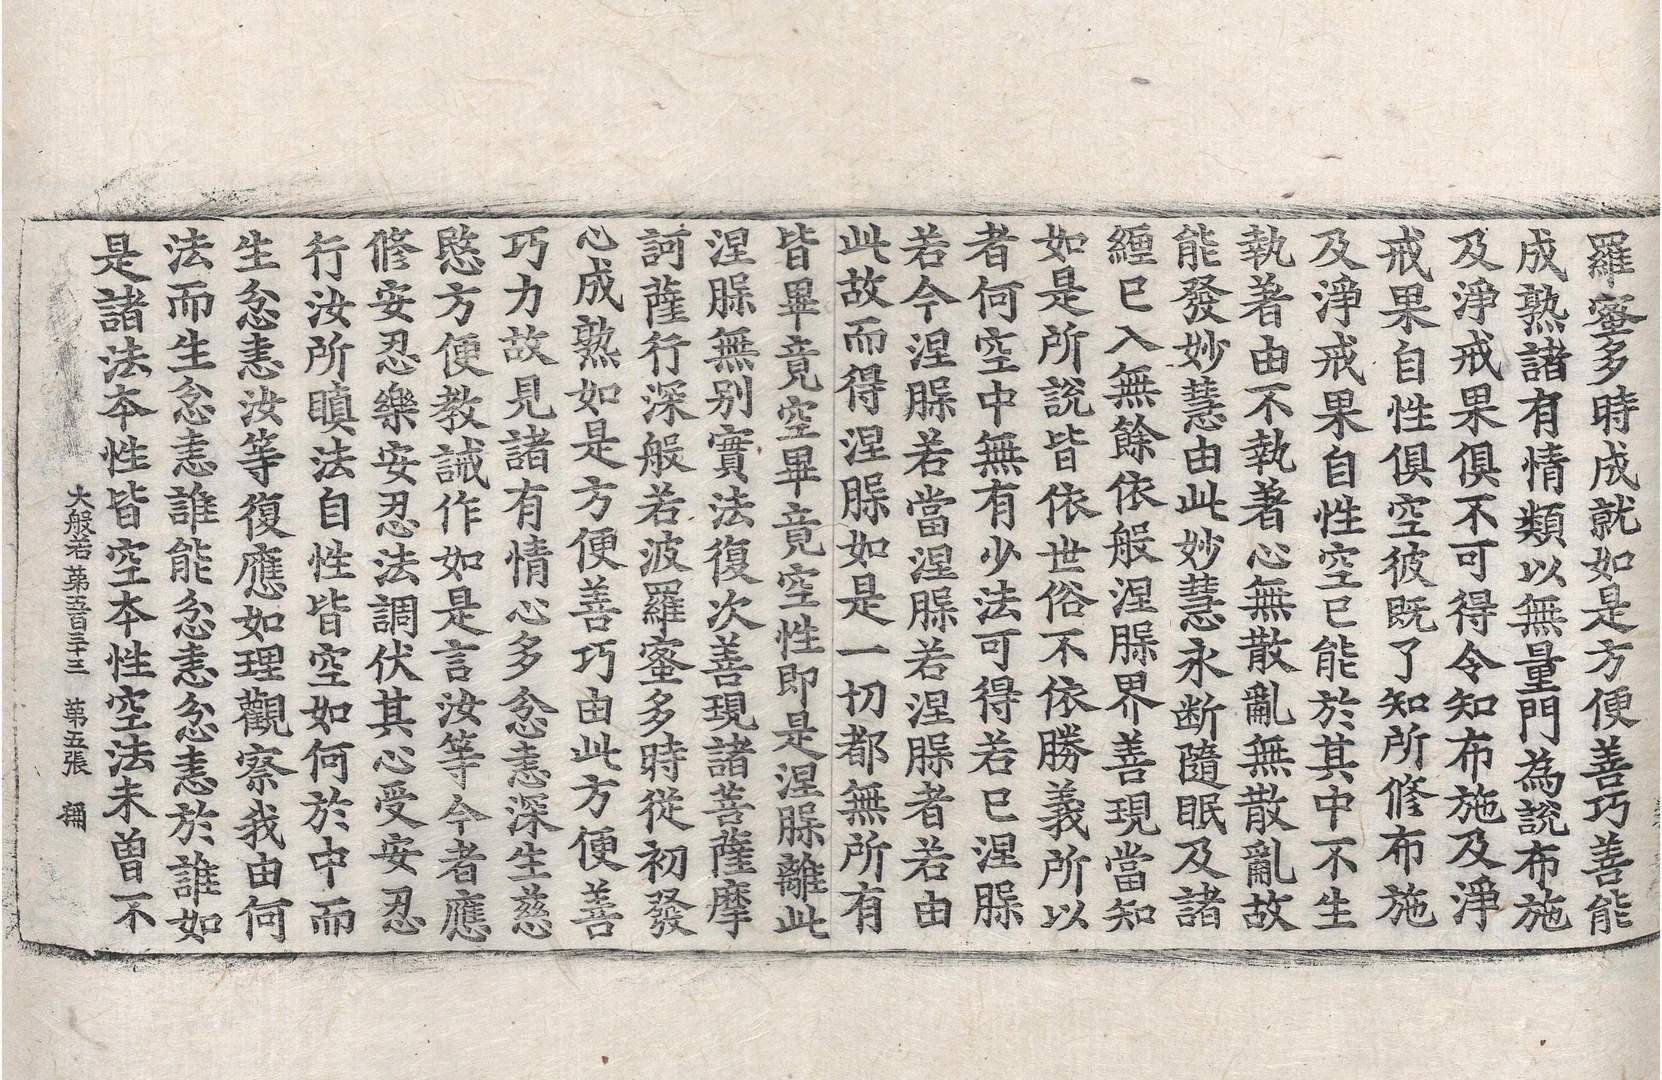 羅蜜多時成就如是方便善巧善能
成熟諸有情類以無量門為說布施
及淨戒果俱不可得令知布施及淨
戒果自性俱空彼旣了知所修布施
及淨戒果自性空已能於其中不生
執著由不執著心無散亂無散亂故
能發妙慧由此妙慧永斷隨眠及諸
纏已入無餘依般涅槃界善現當知
如是所說皆依世俗不依勝義所以
者何空中無有少法可得若已涅槃
若今涅槃若當涅槃若涅槃者若由
此故而得涅槃如是一切都無所有
皆畢竟空畢竟空性即是涅槃離此
涅槃無別實法復次善現諸菩薩摩
訶薩行深般若波羅蜜多時從初發
心成熟如是方便善巧由此方便善
巧力故見諸有情心多忿恚深生慈
愍方便教誡作如是言汝等今者應
修安忍樂安忍法調伏其心受安忍
行汝所瞋法自性皆空如何於中而
生忿恚汝等復應如理觀察我由何
法而生忿恚誰能忿恚忿恚於誰如
是諸法本性皆空本性空法未曾不
大般若第五百三十三　第五張　稱